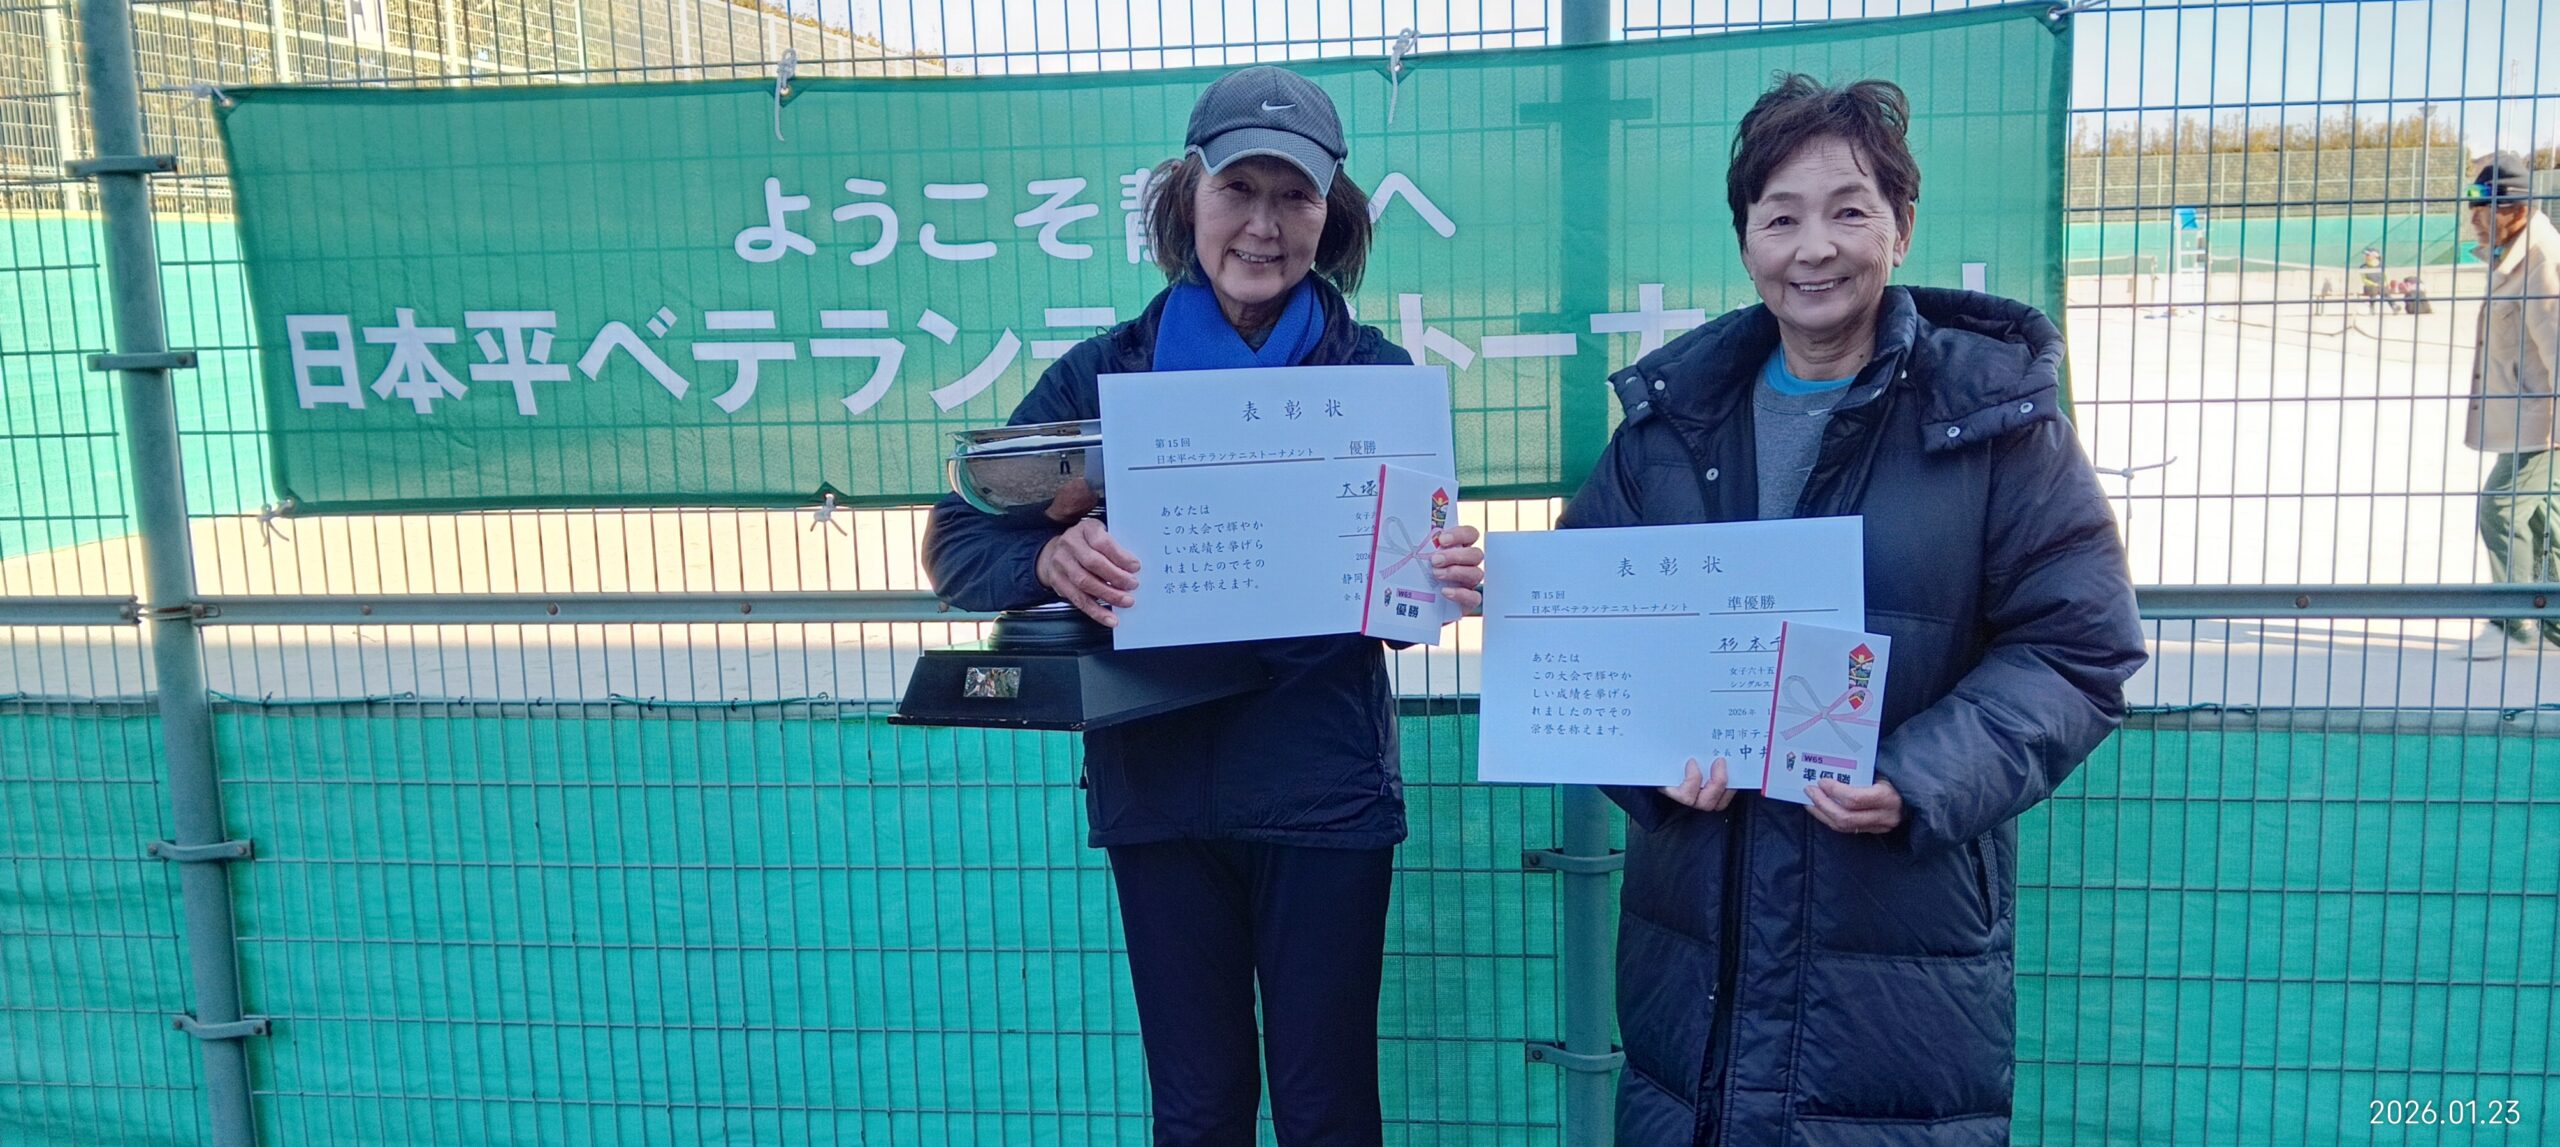 ようこそ
へ
日本平ベテラン
トーナ
表彰状
第15回
日本平ベテランテニストーナメント 優勝
大塚
あなたは
この大会で輝やか
しい成績を挙げら
れましたのでその
栄誉を称えます。
女子六
シング
2026
静岡市
会長
W65
優勝
表彰状
第15回
日本平ベテランテニストーナメント 準優勝
杉本千
あなたは
この大会で輝やか
しい成績を挙げら
れましたのでその
栄誉を称えます。
女子六十五
シングルス
2026年 1
静岡市テニ
会長 中井
W65
準優勝
2026.01.23